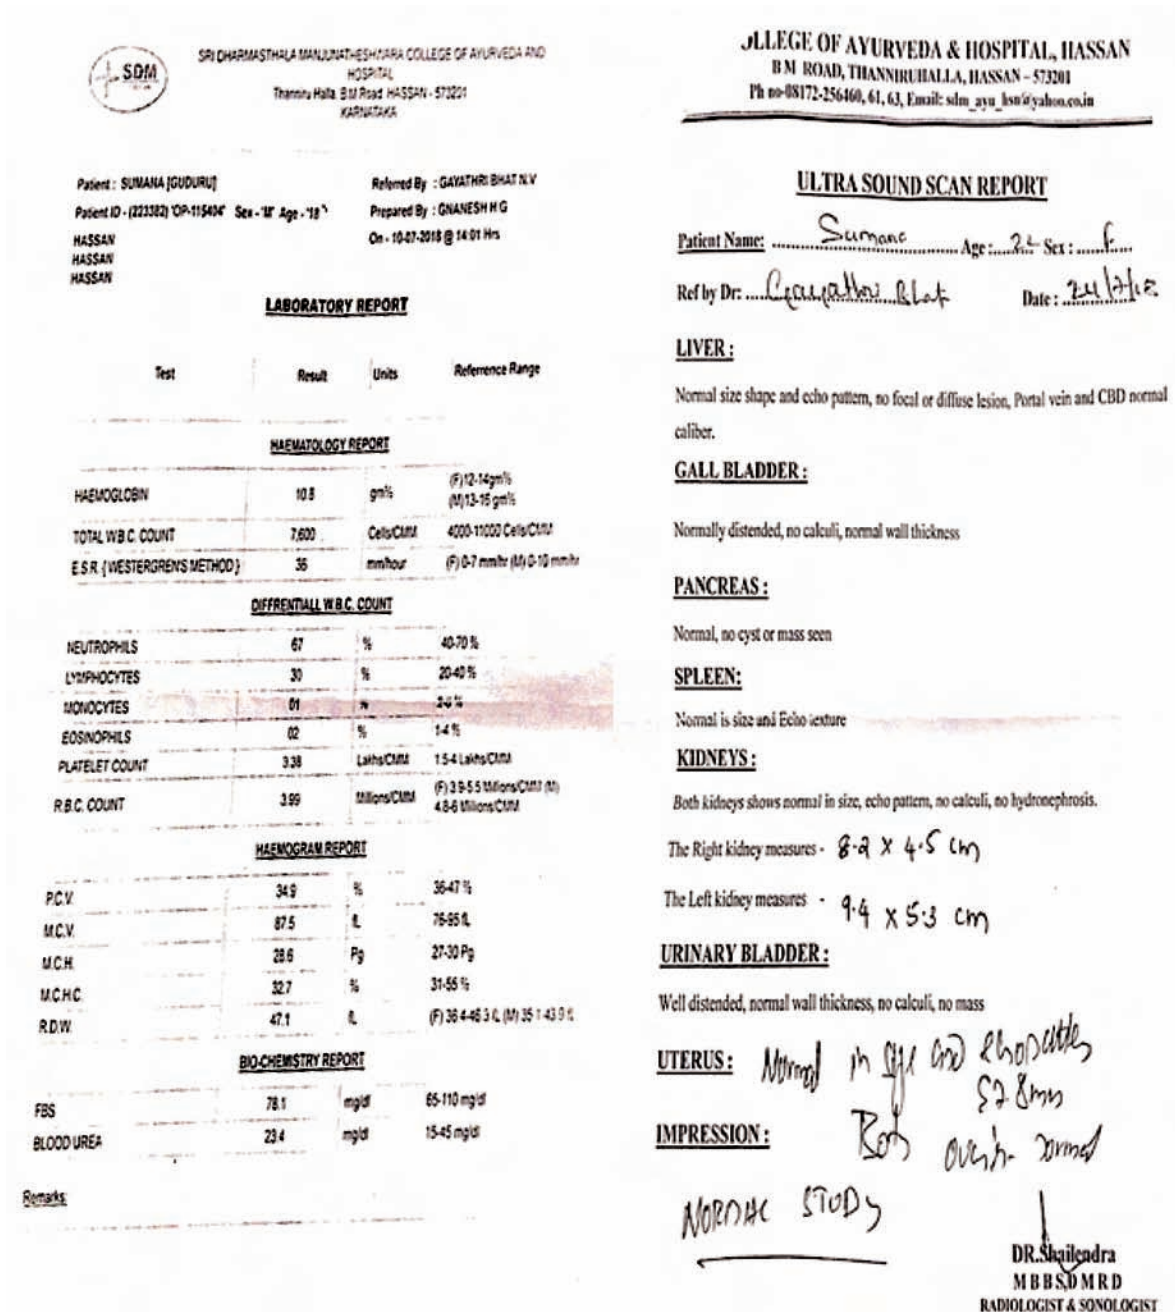 SDM
SRI DHARMASTHALA MANJUNATHESHWARA COLLEGE OF AYURVEDA AND
HOSPITAL
Thanniru Halla, B.M Road, HASSAN - 573201
KARNATAKA
Patient : SUMANA [GUDURU]
Referred By : GAYATHRI BHAT N.V
Patient ID - (223382) 'OP-115404' Sex - Age - '18'
Prepared By : GNANESH H G
HASSAN
On - 10-07-2018 @ 14:01 Hrs
HASSAN
HASSAN
LABORATORY REPORT
Test Result Units Referrence Range
HAEMATOLOGY REPORT
HAEMOGLOBIN 10.8 gm% (F)12-14gm%
(M)13-16 gm%
TOTAL W.B.C. COUNT 7,600 Cells/CMM 4000-11000 Cells/CMM
E.S.R. {WESTERGREN'S METHOD} 36 mm/hour (F) 0-7 mm/hr (M) 0-10 mm/hr
DIFFRENTIALL W.B.C. COUNT
NEUTROPHILS 67 % 40-70 %
LYMPHOCYTES 30 % 20-40 %
MONOCYTES 01 %
EOSINOPHILS 02 % 1-4 %
PLATELET COUNT 3.38 Lakhs/CMM 1.5-4 Lakhs/CMM
R.B.C. COUNT 3.99 Millions/CMM (F) 3.9-5.5 Millions/CMM (M)
4.8-6 Millions/CMM
HAEMOGRAM REPORT
P.C.V. 34.9 % 36-47 %
M.C.V. 87.5 fL 76-95 fL
M.C.H. 28.6 Pg 27-30 Pg
M.C.H.C. 32.7 % 31-55 %
R.D.W. 47.1 fL (F) 36.4-46.3 fL (M) 35.1-43.9 fL
BIO-CHEMISTRY REPORT
FBS 78.1 mg/dl 65-110 mg/dl
BLOOD UREA 23.4 mg/dl 15-45 mg/dl
Remarks:
LLEGE OF AYURVEDA & HOSPITAL, HASSAN
B M ROAD, THANNIRUHALLA, HASSAN – 573201
Ph no-08172-256460, 61, 63, Email: sdm_ayu_hsn@yahoo.co.in
ULTRA SOUND SCAN REPORT
Patient Name: Sumana Age : Sex : F
Ref by Dr: Gayathri Bhat Date : 24/7/18
LIVER :
Normal size shape and echo pattern, no focal or diffuse lesion, Portal vein and CBD normal
caliber.
GALL BLADDER :
Normally distended, no calculi, normal wall thickness
PANCREAS :
Normal, no cyst or mass seen
SPLEEN:
Normal is size and Echo texture
KIDNEYS :
Both kidneys shows normal in size, echo pattern, no calculi, no hydronephrosis.
The Right kidney measures - 8.2 X 4.5 cm
The Left kidney measures - 9.4 X 5.3 cm
URINARY BLADDER :
Well distended, normal wall thickness, no calculi, no mass
UTERUS : Normal in size and
8mm
IMPRESSION : Both normal
NORMAL STUDY
DR.Shailendra
M B B S,D M R D
RADIOLOGIST & SONOLOGIST